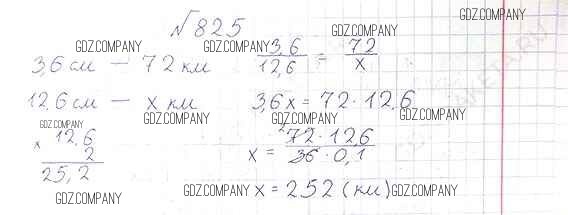 №825
GDZ.COMPANY
GDZ.COMPANY GDZ.COMPANY GDZ.COMPANY
3,6 см — 72 км 3,6/12,6 = 72/x
12,6 см — x км 3,6x = 72·12,6
GDZ.COMPANY GDZ.COMPANY GDZ.COMPANY
× 12,6
2
25,2
x = 72·12,6/36·0,1
GDZ.COMPANY GDZ.COMPANY GDZ.COMPANY
x = 252 (км)